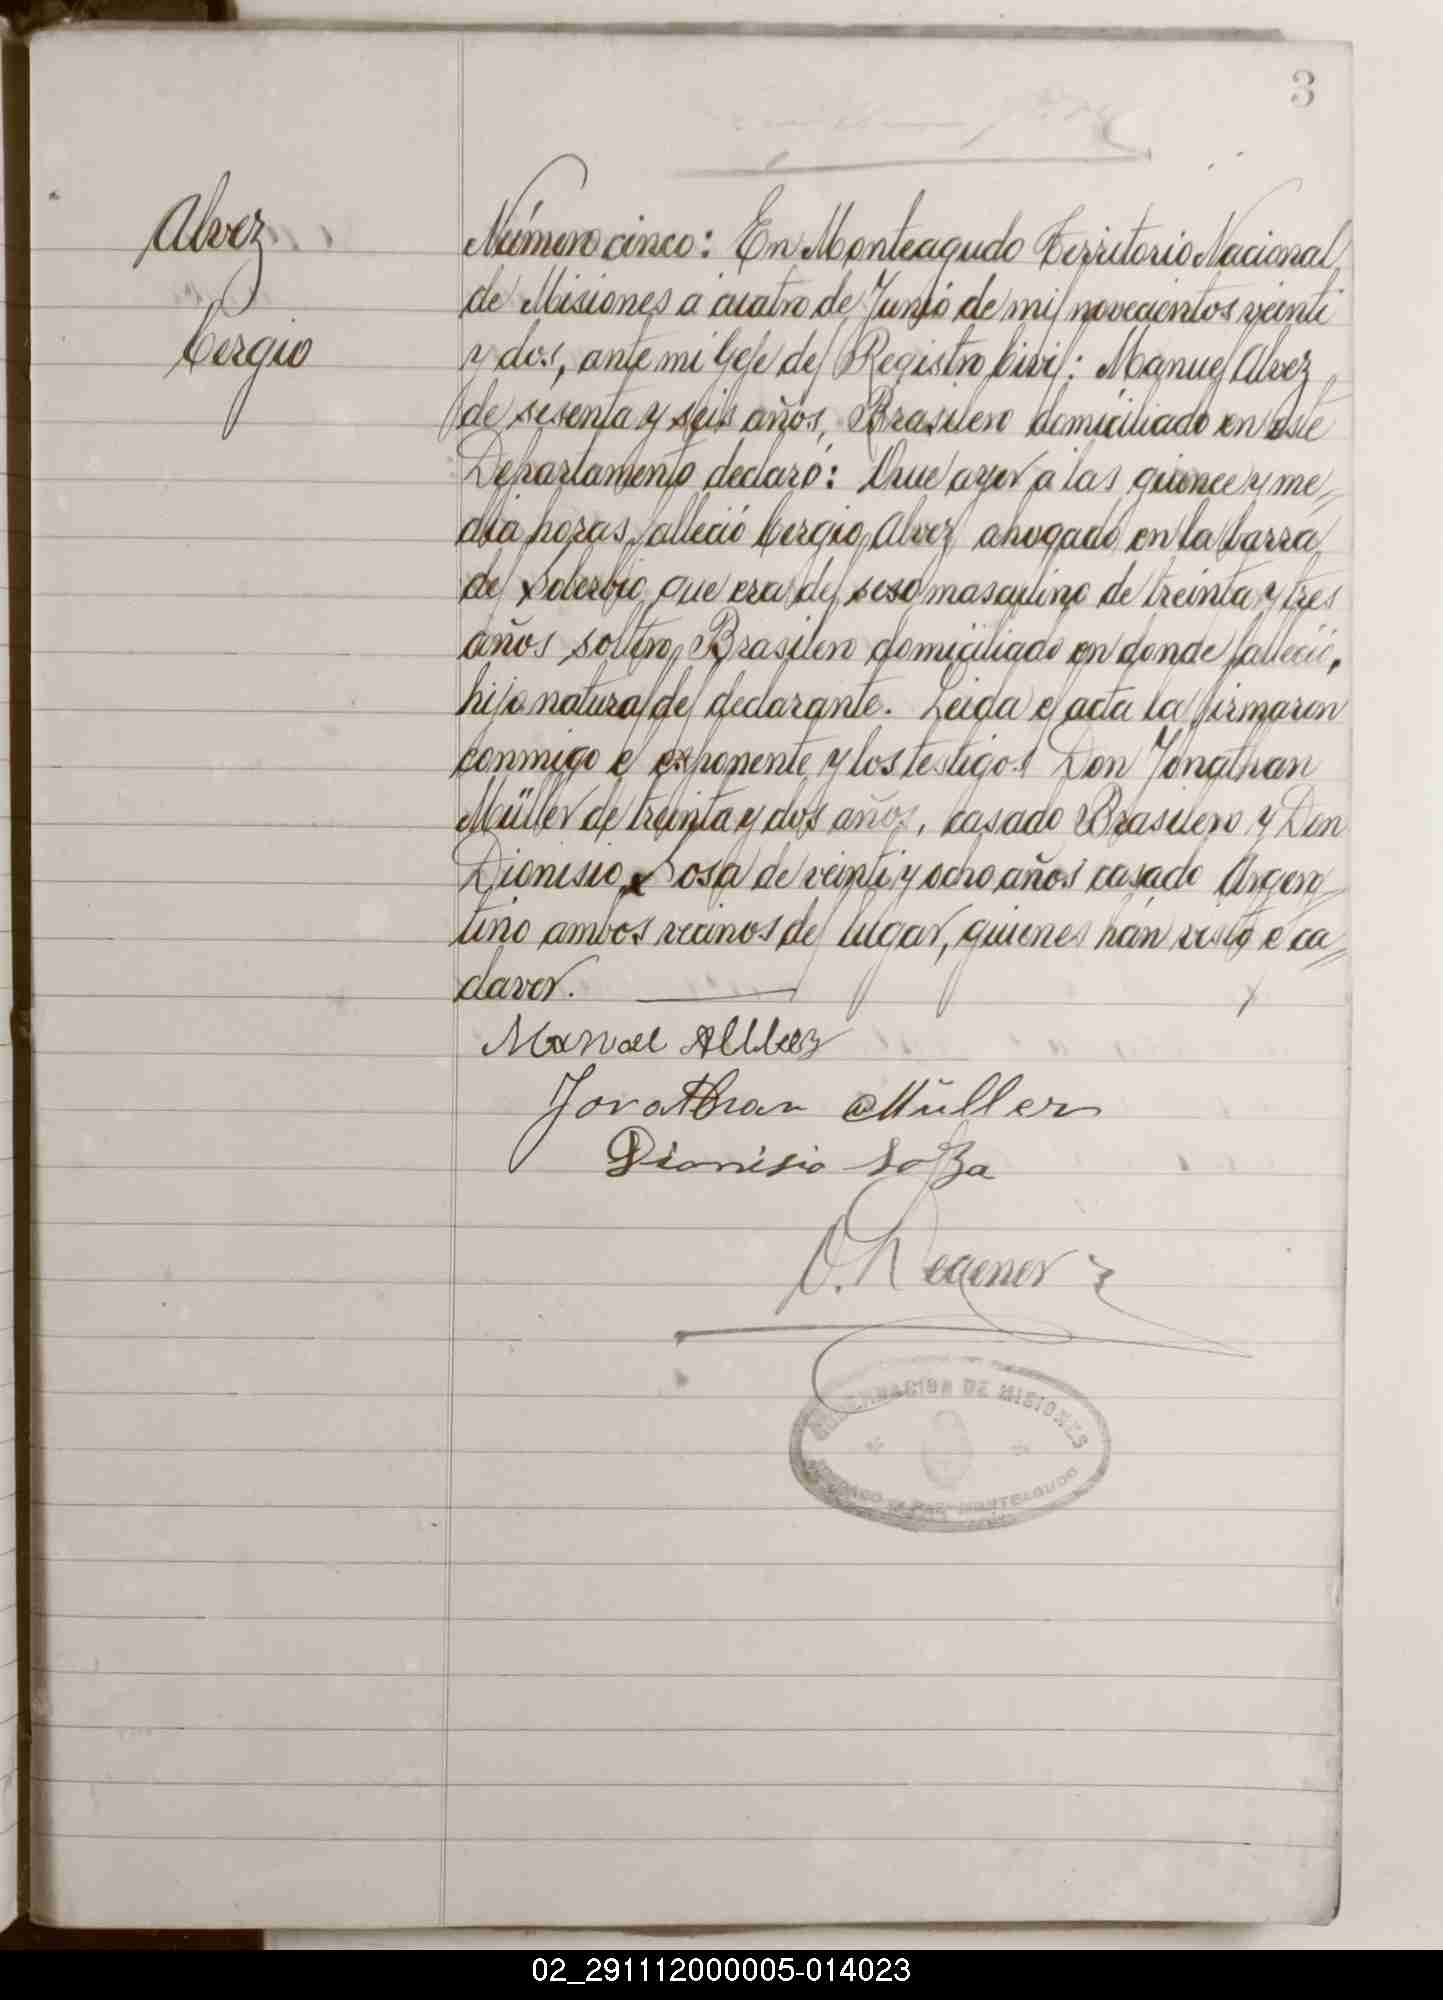 3
Alvez
Cergio
Número cinco: En Monteagudo Territorio Nacional
de Misiones a cuatro de Junio de mil novecientos veinti
y dos, ante mi Gefe del Registro Civil: Manuel Alvez
de sesenta y seis años, Brasilero domiciliado en este
Departamento declaró: Que ayer a las quince y me=
dia horas falleció Cergio Alvez ahogado en la barra
del Soberbio que era del sexo masculino de treinta y tres
años soltero, Brasilero domiciliado en donde falleció,
hijo natural del declarante. Leida el acta la firmaron
conmigo el exponente y los testigos Don Jonathan
Müller de treinta y dos años, casado Brasilero y Don
Dionisio Sosa de veinti y ocho años casado Argen=
tino ambos vecinos del lugar, quienes hán visto el ca=
daver.
Manoel Allvez
Jonathan Müller
Dionisio Soza
O. Wegener
GOBERNACION DE MISIONES
JUZGADO DE PAZ MONTEAGUDO
02_291112000005-014023